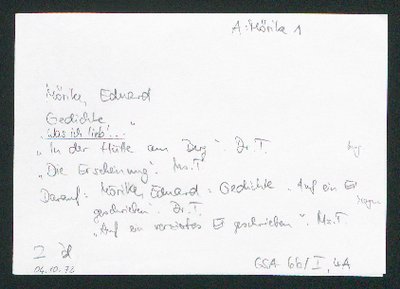 A: Mörike 1
Mörike, Eduard
Gedichte
„Was ich lieb"...
„In der Hütte am Berg". Dr. T.
„Die Erscheinung". Ms. T.
Darauf: Mörike, Eduard: Gedichte. Auf ein Ei
geschrieben. Dr. T.
„Auf ein verziertes Ei geschrieben". Ms. T.
04.10.72
GSA 6b/I, 4A